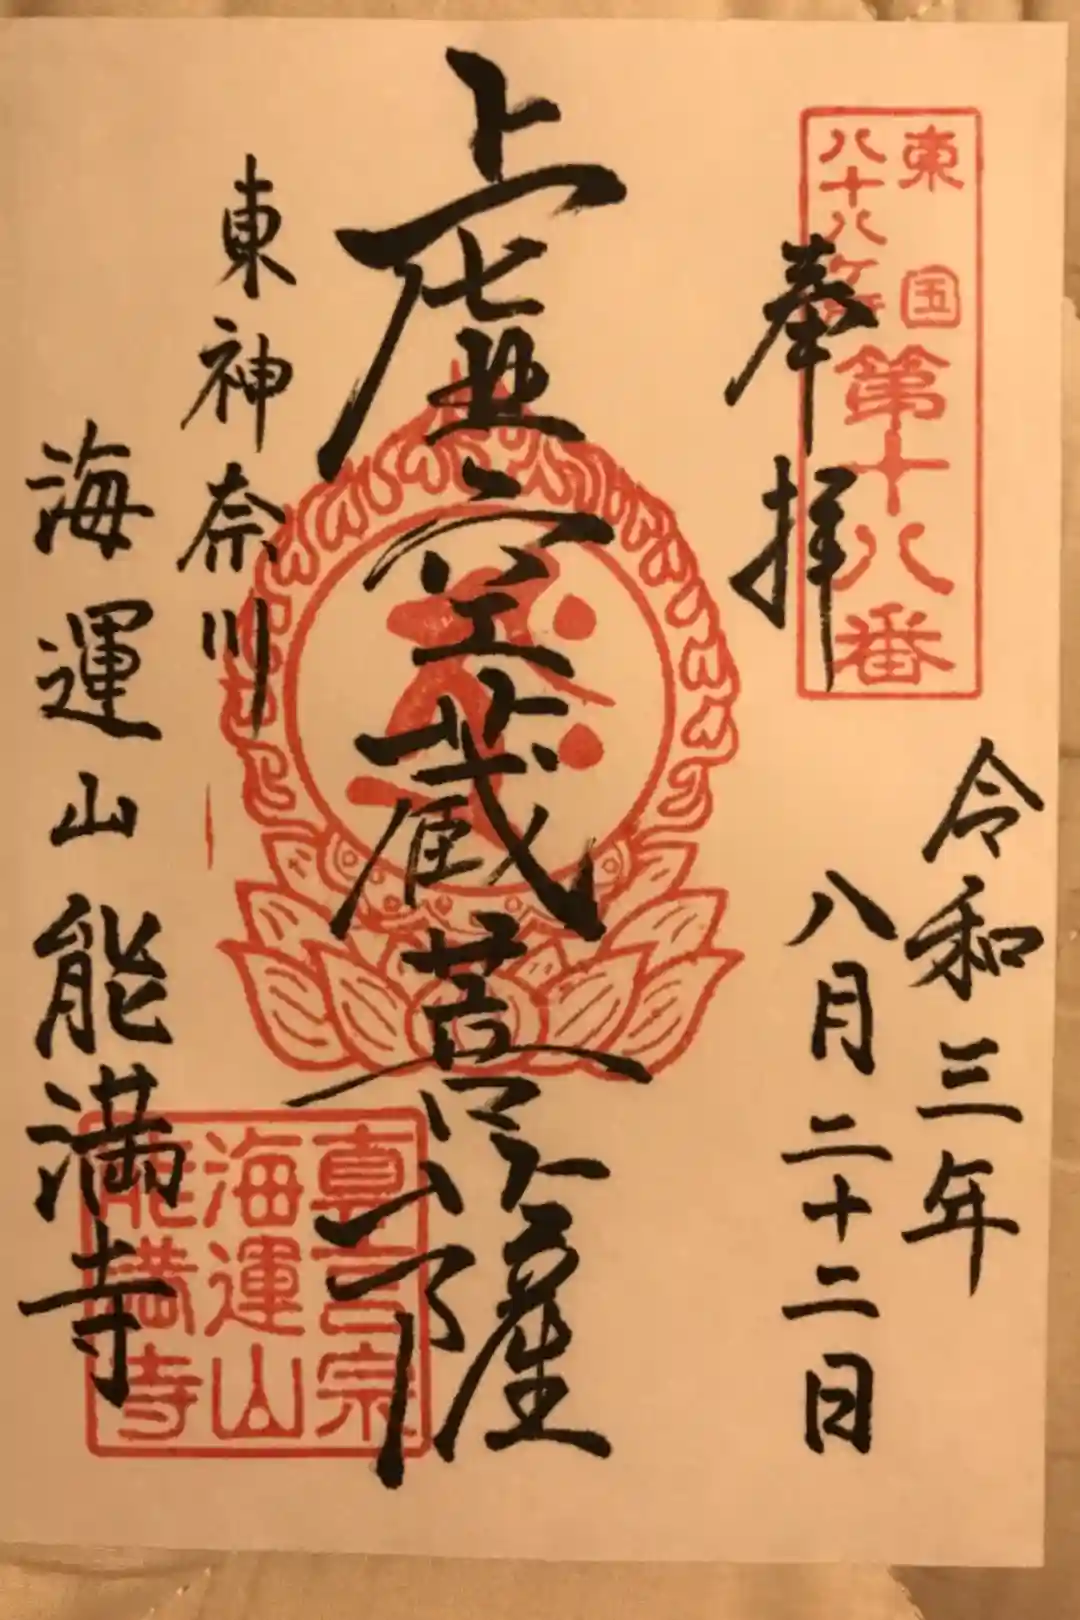 東国
八十八ケ所
第十八番
奉拝
令和三年
八月二十二日
虚空蔵菩薩
東神奈川
海運山能満寺
真言宗
海運山
能満寺